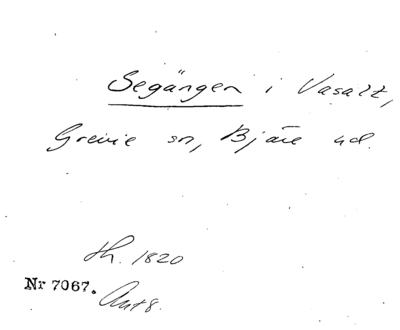 Segängen i Vasalt,
Grevie sn, Bjäre hd.
th. 1820
Nr 7067.
Ant 8.